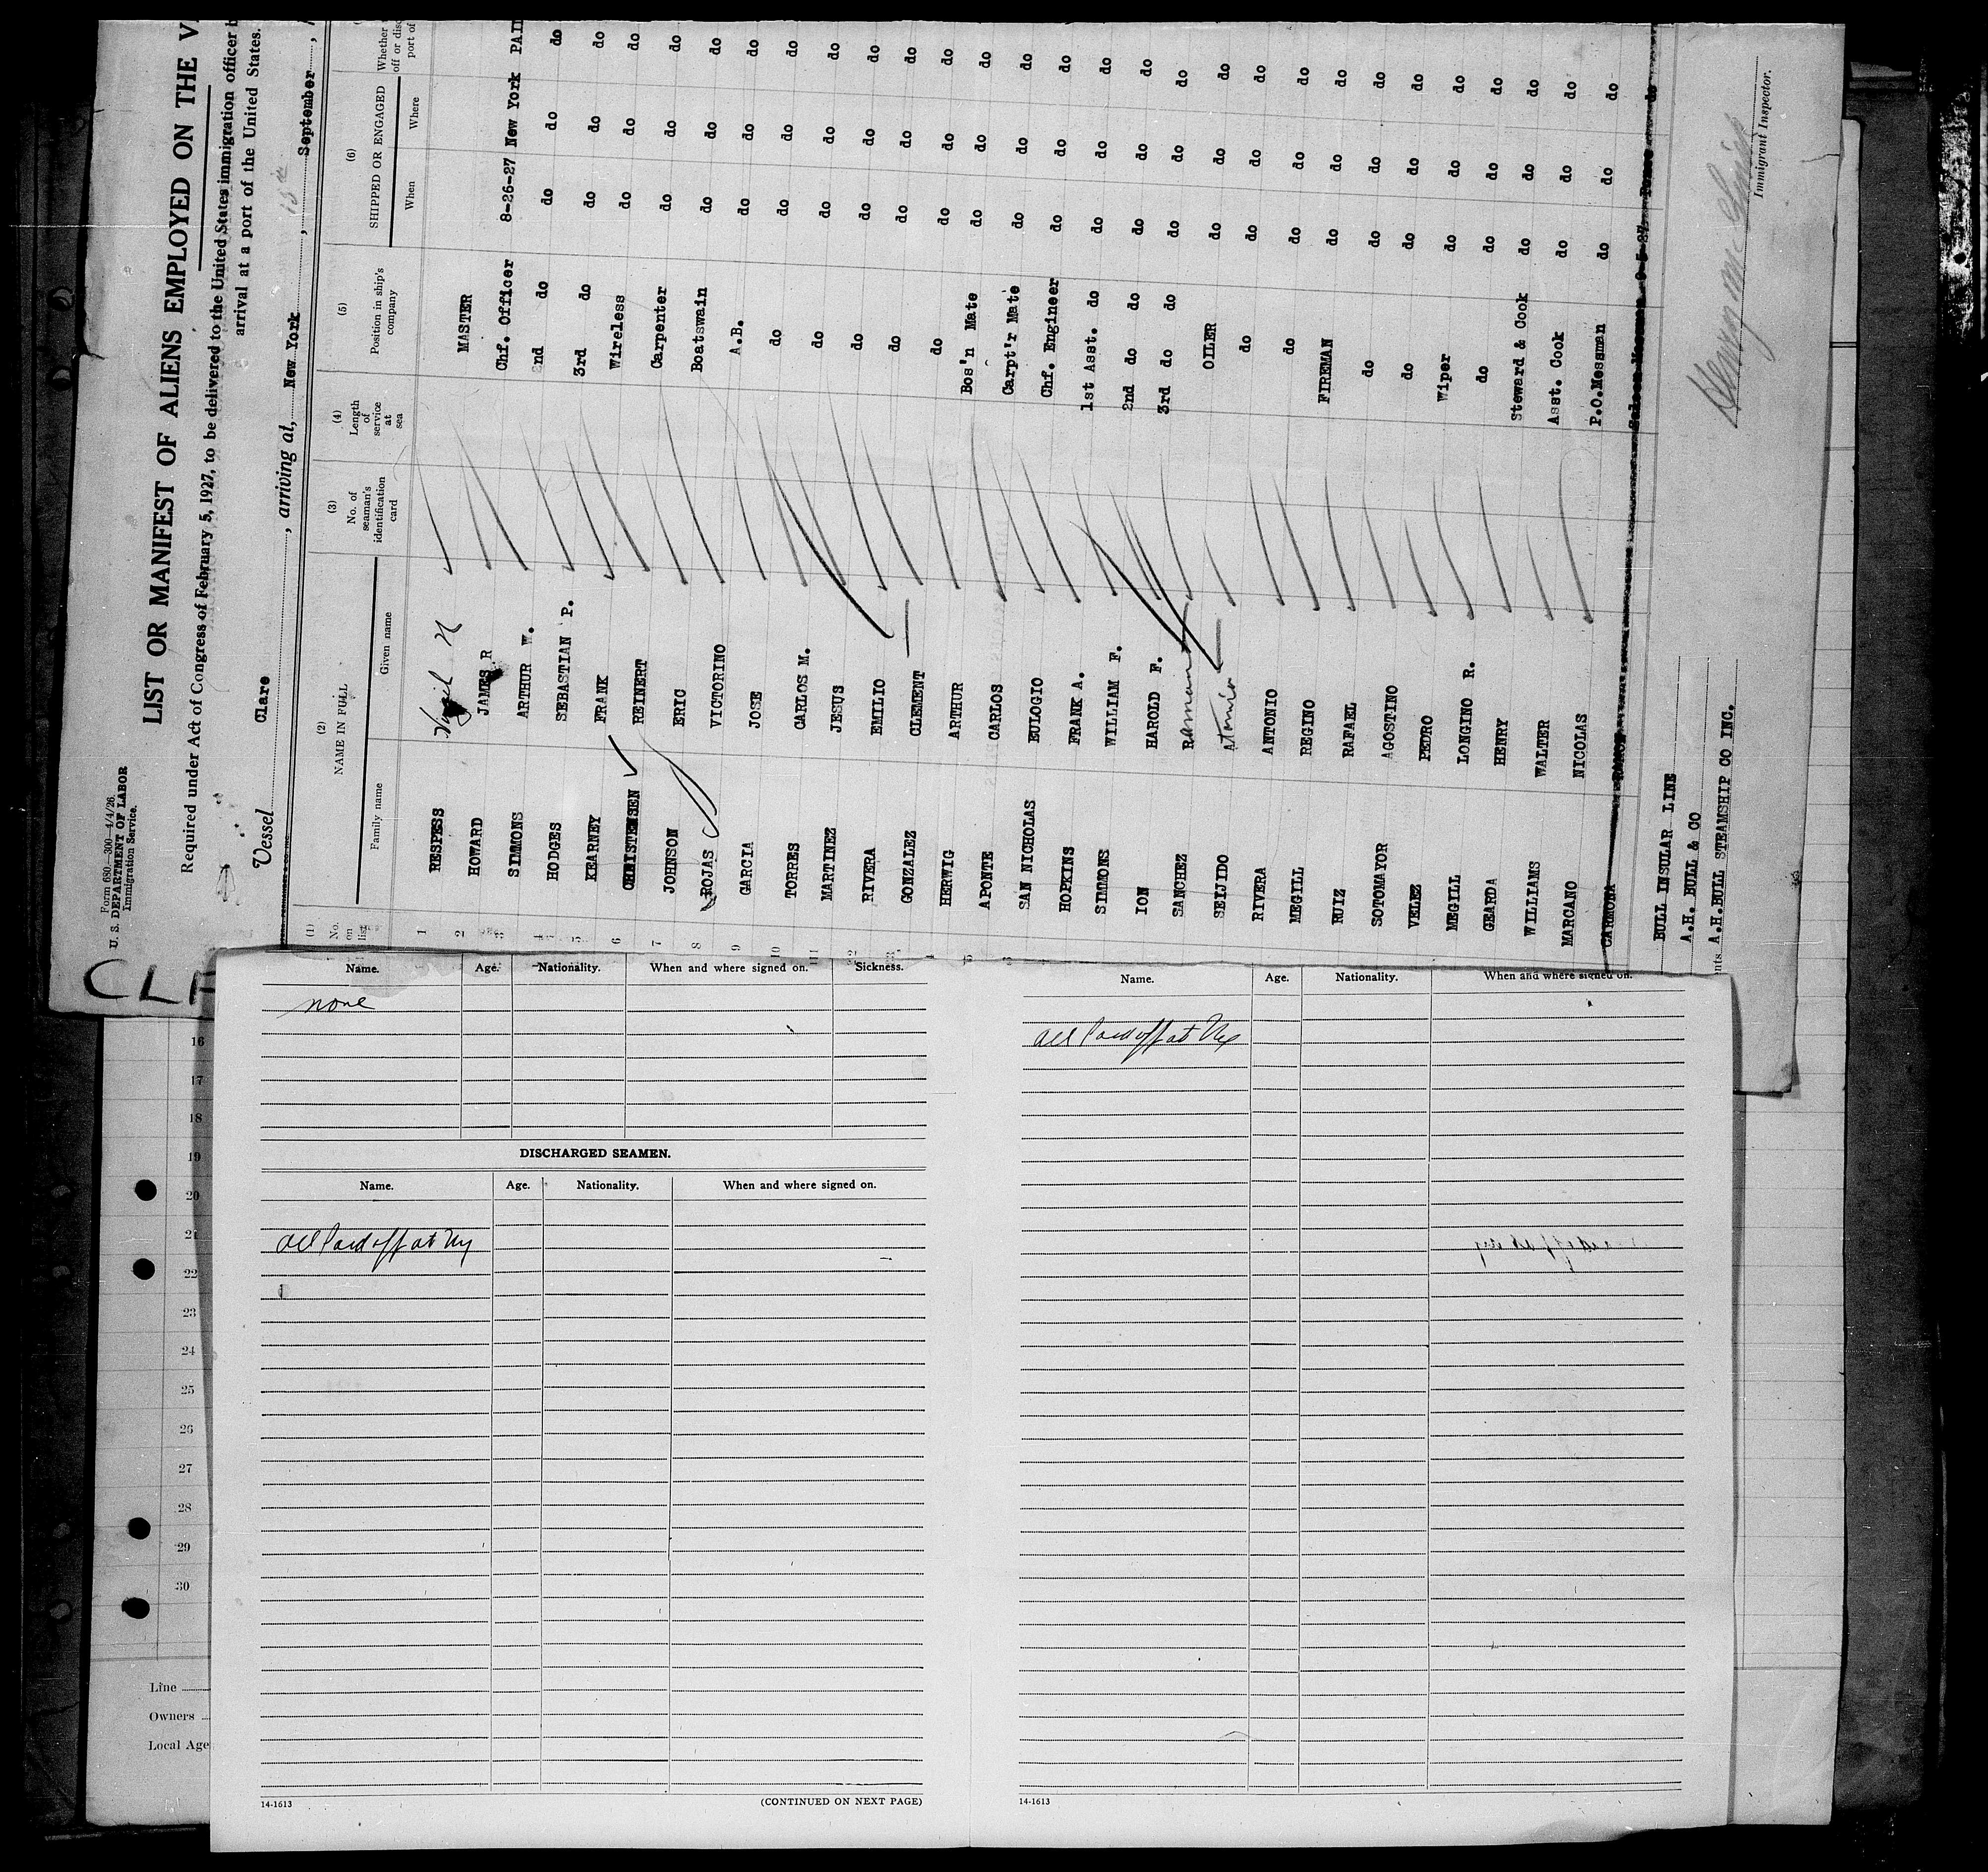 Form 680.—300—4/4/26.
U. S. DEPARTMENT OF LABOR
Immigration Service.
LIST OR MANIFEST OF ALIENS EMPLOYED ON THE
Required under Act of Congress of February 5, 1927, to be delivered to the United States immigration officer
arrival at a port of the United States.
Vessel Clare, arriving at, New York, 15th September
(1) No. on list
(2) NAME IN FULL Family name Given name
(3) No. of seaman's identification card
(4) Length of service at sea
(5) Position in ship's company
(6) SHIPPED OR ENGAGED When Where
Whether
off or
port of
1 RESPESS Virgil N MASTER
2 HOWARD JAMES R Chf. Officer 8-26-27 New York PAID
3 SIMMONS ARTHUR W. 2nd do do do do
4 HODGES SEBASTIAN P. 3rd do do do do
5 KEARNEY FRANK Wireless do do do
6 CHRISTENSEN REINERT Carpenter do do do
7 JOHNSON ERIC Boatswain do do do
8 ROJAS VICTORINO A.B. do do do
9 GARCIA JOSE do do do do
10 TORRES CARLOS M. do do do do
11 MARTINEZ JESUS do do do do
RIVERA EMILIO do do do do
GONZALEZ CLEMENT do do do do
HERWIG ARTHUR Bos'n Mate do do do
APONTE CARLOS Carpt'r Mate do do do
SAN NICHOLAS EULOGIO Chf. Engineer do do do
HOPKINS FRANK A. 1st Asst. do do do do
SIMMONS WILLIAM F. 2nd do do do do do
ION HAROLD F. 3rd do do do do do
SANCHEZ Ramon OILER do do do
SEIJIDO Antonio do do do do
RIVERA ANTONIO do do do do
MEGILL REGINO FIREMAN do do do
RUIZ RAFAEL do do do do
SOTOMAYOR AGOSTINO do do do do
VELEZ PEDRO Wiper do do do
MEGILL LONGINO R. do do do do
GEARDA HENRY Steward & Cook do do do
WILLIAMS WALTER Asst. Cook do do do
MARCANO NICOLAS P.O.Messman do do do
CARMONA RAMON Saloon Messman 9-5-27 Ponce do
BULL INSULAR LINE
A.H. BULL & CO
nts. A.H.BULL STEAMSHIP CO INC.
Immigrant Inspector.
Name. Age. Nationality. When and where signed on. Sickness.
none
DISCHARGED SEAMEN.
Name. Age. Nationality. When and where signed on.
All Paid off at Ny
14-1613 (CONTINUED ON NEXT PAGE)
Name. Age. Nationality. When and where signed on.
All Paid off at Ny
14-1613
16
17
18
19
20
21
22
23
24
25
26
27
28
29
30
Line
Owners
Local Age